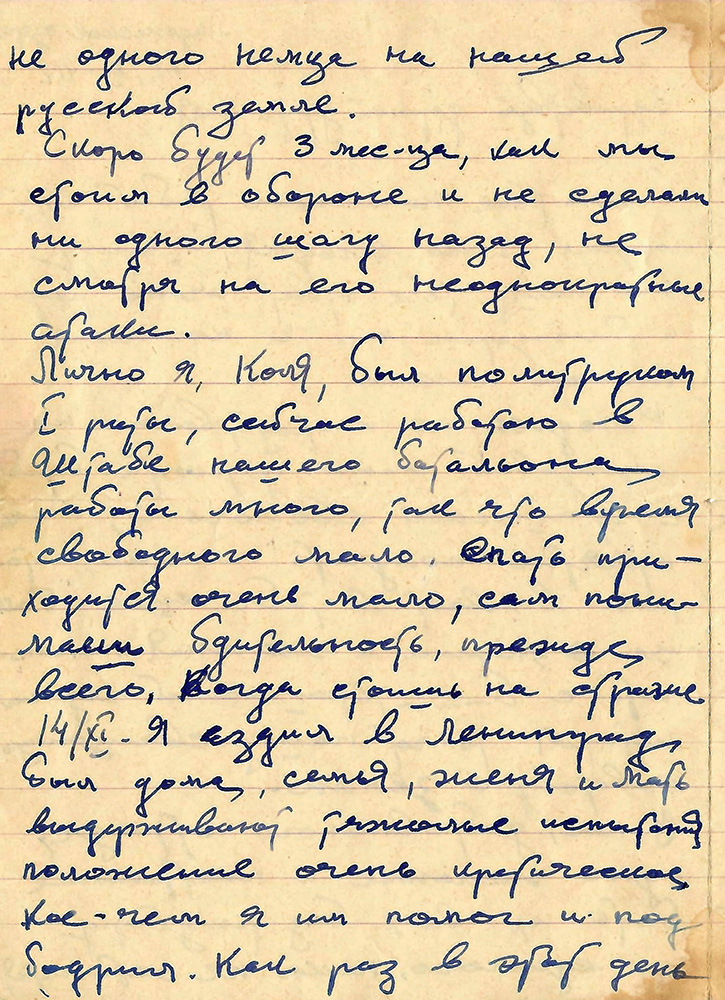 не одного немца на нашей
русской земле.
Скоро будет 3 мес-ца, как мы
стоим в обороне и не сделали
ни одного шагу назад, не
смотря на его неоднократные
атаки.
Лично я, Коля, был политруком
I роты, сейчас работаю в
Штабе нашего батальона,
работы много, так что время
свободного мало. Спать при-
ходится очень мало, сам пони-
маеш бдительность, прежде
всего, Когда стоишь на страже
14/XI - Я ездил в Ленинград,
был дома, семья, женя и мать
выдерживают тяжолые испытания
положение очень критическое,
кое-чем я им помог и под
бодрил. Как раз в этот день